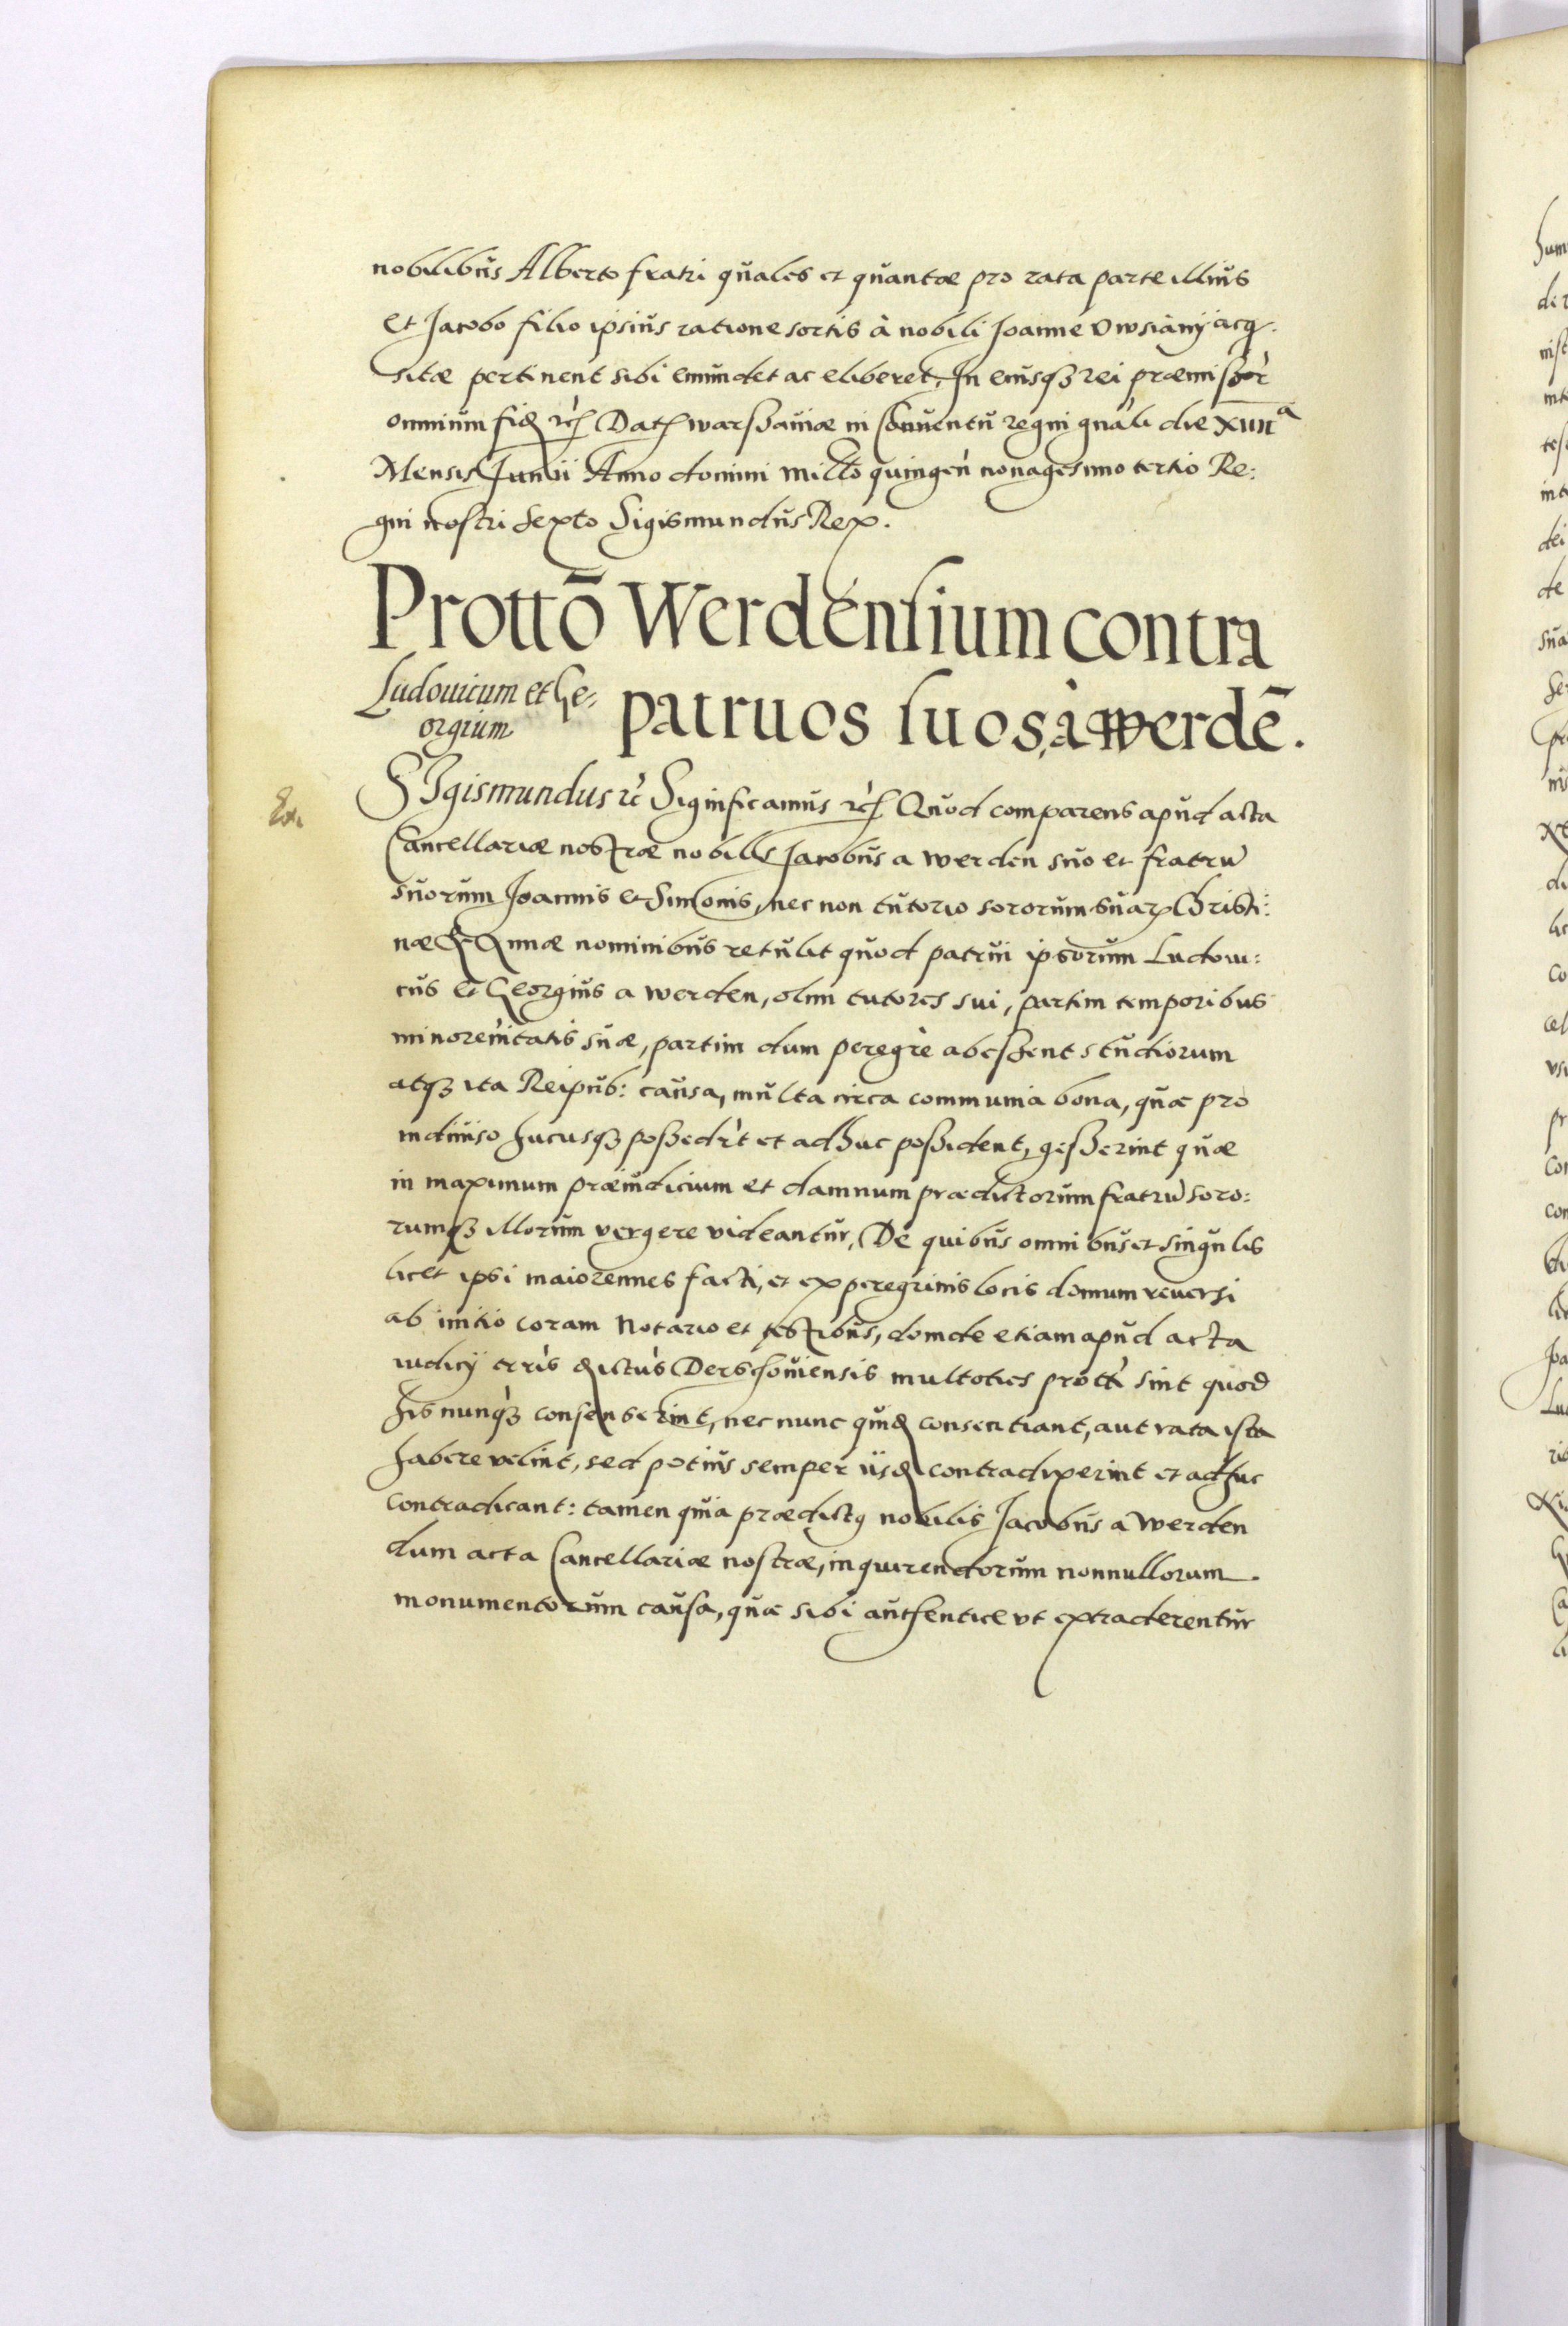 nobilibus Alberto fratri quales et quantæ pro rata parte illius
et Jacobo filio ipsius ratione sortis à nobili Joanne Uwsiany acq-
sitæ pertinent sibi emundet ac eliberet. In cuiusqȝ rei præmissor
omnium fid rc Dat warssaviæ in Conventu regni gnali die XIIII a
Mensis Junii Anno domini millo quingen nonagesimo tertio Re:
gni nostri sexto Sigismundus Rex.
Prottō Werdensium contra
patruos suos, à werdē.
Ludovicum et Ge-
orgium
Ex.
SIgismundus rc Significamus rc Quod comparens apud acta
Cancellariæ nostræ nobilis Jacobus a werden suo et fratrū
suorum Joannis et Simonis, nec non tutorio sororum suaꝝ Christi:
næ & Annæ nominibus retulit quod patrui ipsorum Ludovi:
cus et Georgius a werden, olim tutores sui, partim temporibus
minorennitatis suæ, partim dum peregrè abessent studiorum
atqȝ ita Reipub: causa, multa circa communia bona, quæ pro
indiviso hucusqȝ possedrt et adhuc possident, gesserint quæ
in maximum præiudicium et damnum prædictorum fratrū soro:
rumqȝ illorum vergere videantur, De quibus omnibus et singulis
licet ipsi maiorennes facti, et ex peregrinis locis domum reversi
ab initio coram Notario et testibus, domde etiam apud acta
iudicij trris Derschoviensis multoties protti sint quod
his nunqȝ consenserint, nec nunc quid consentiant, aut rata ista
habere velint, sed potius semper iisd contradixerint et adhuc
contradicant: tamen quia prædictꝰ nobilis Jacobus a Werden
dum acta Cancellariæ nostræ, inquirendorum nonnullorum
monumentorum causa, quæ sibi authentice ut extraderentur